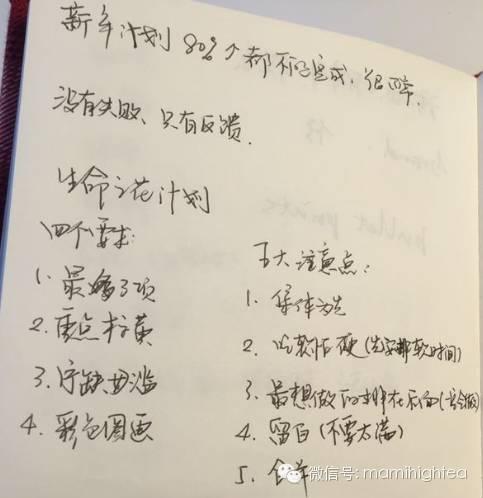 新年计划 80% 都 完成.
没有失败、只有反馈.
生命之花计划
四个要求:
1. 最 项
2. 重点
3. 宁缺毋滥
4. 彩色图画
五大注意点:
1. 集体为先
2. 吃软怕硬(先安排软时间)
3. 最想做的排在后面
4. 留白(不要太满)
5. 合并
微信号: mamihightea